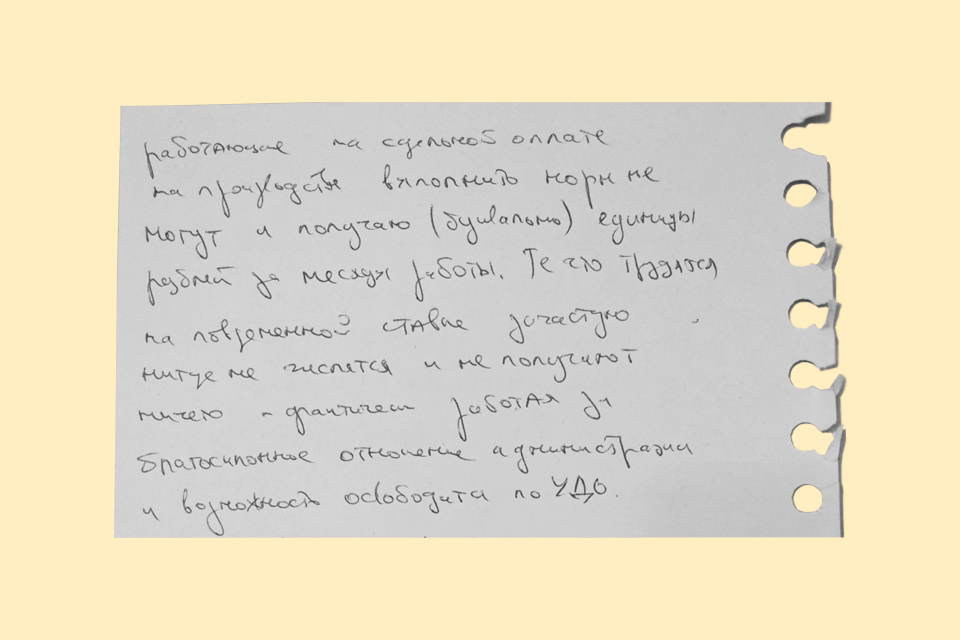 работающие на сдельной оплате
на производстве выполнить норм не
могут и получаю (буквально) единицы
рублей за месяцы работы. Те что трудятся
на повременной ставке зачастую
нигде не числятся и не получают
ничего - фактически работая за
благосклонное отношение администрации
и возможность освободится по УДО.